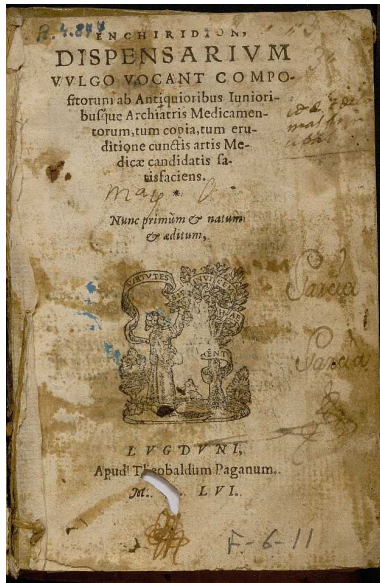 R. 4.844
ENCHIRIDION,
DISPENSARIVM
VVLGO VOCANT COMPO-
sitorum ab Antiquioribus Iuniori-
busque Archiatris Medicamen-
torum, tum copia, tum eru-
ditione cunctis artis Me-
dicæ candidatis sa-
tisfaciens.
*
Nunc primùm & natum
& æditum,
VIRTUTES
Garcia
Garcia
LVGDVNI,
Apud Theobaldum Paganum.
M. LVI.
F-6-11